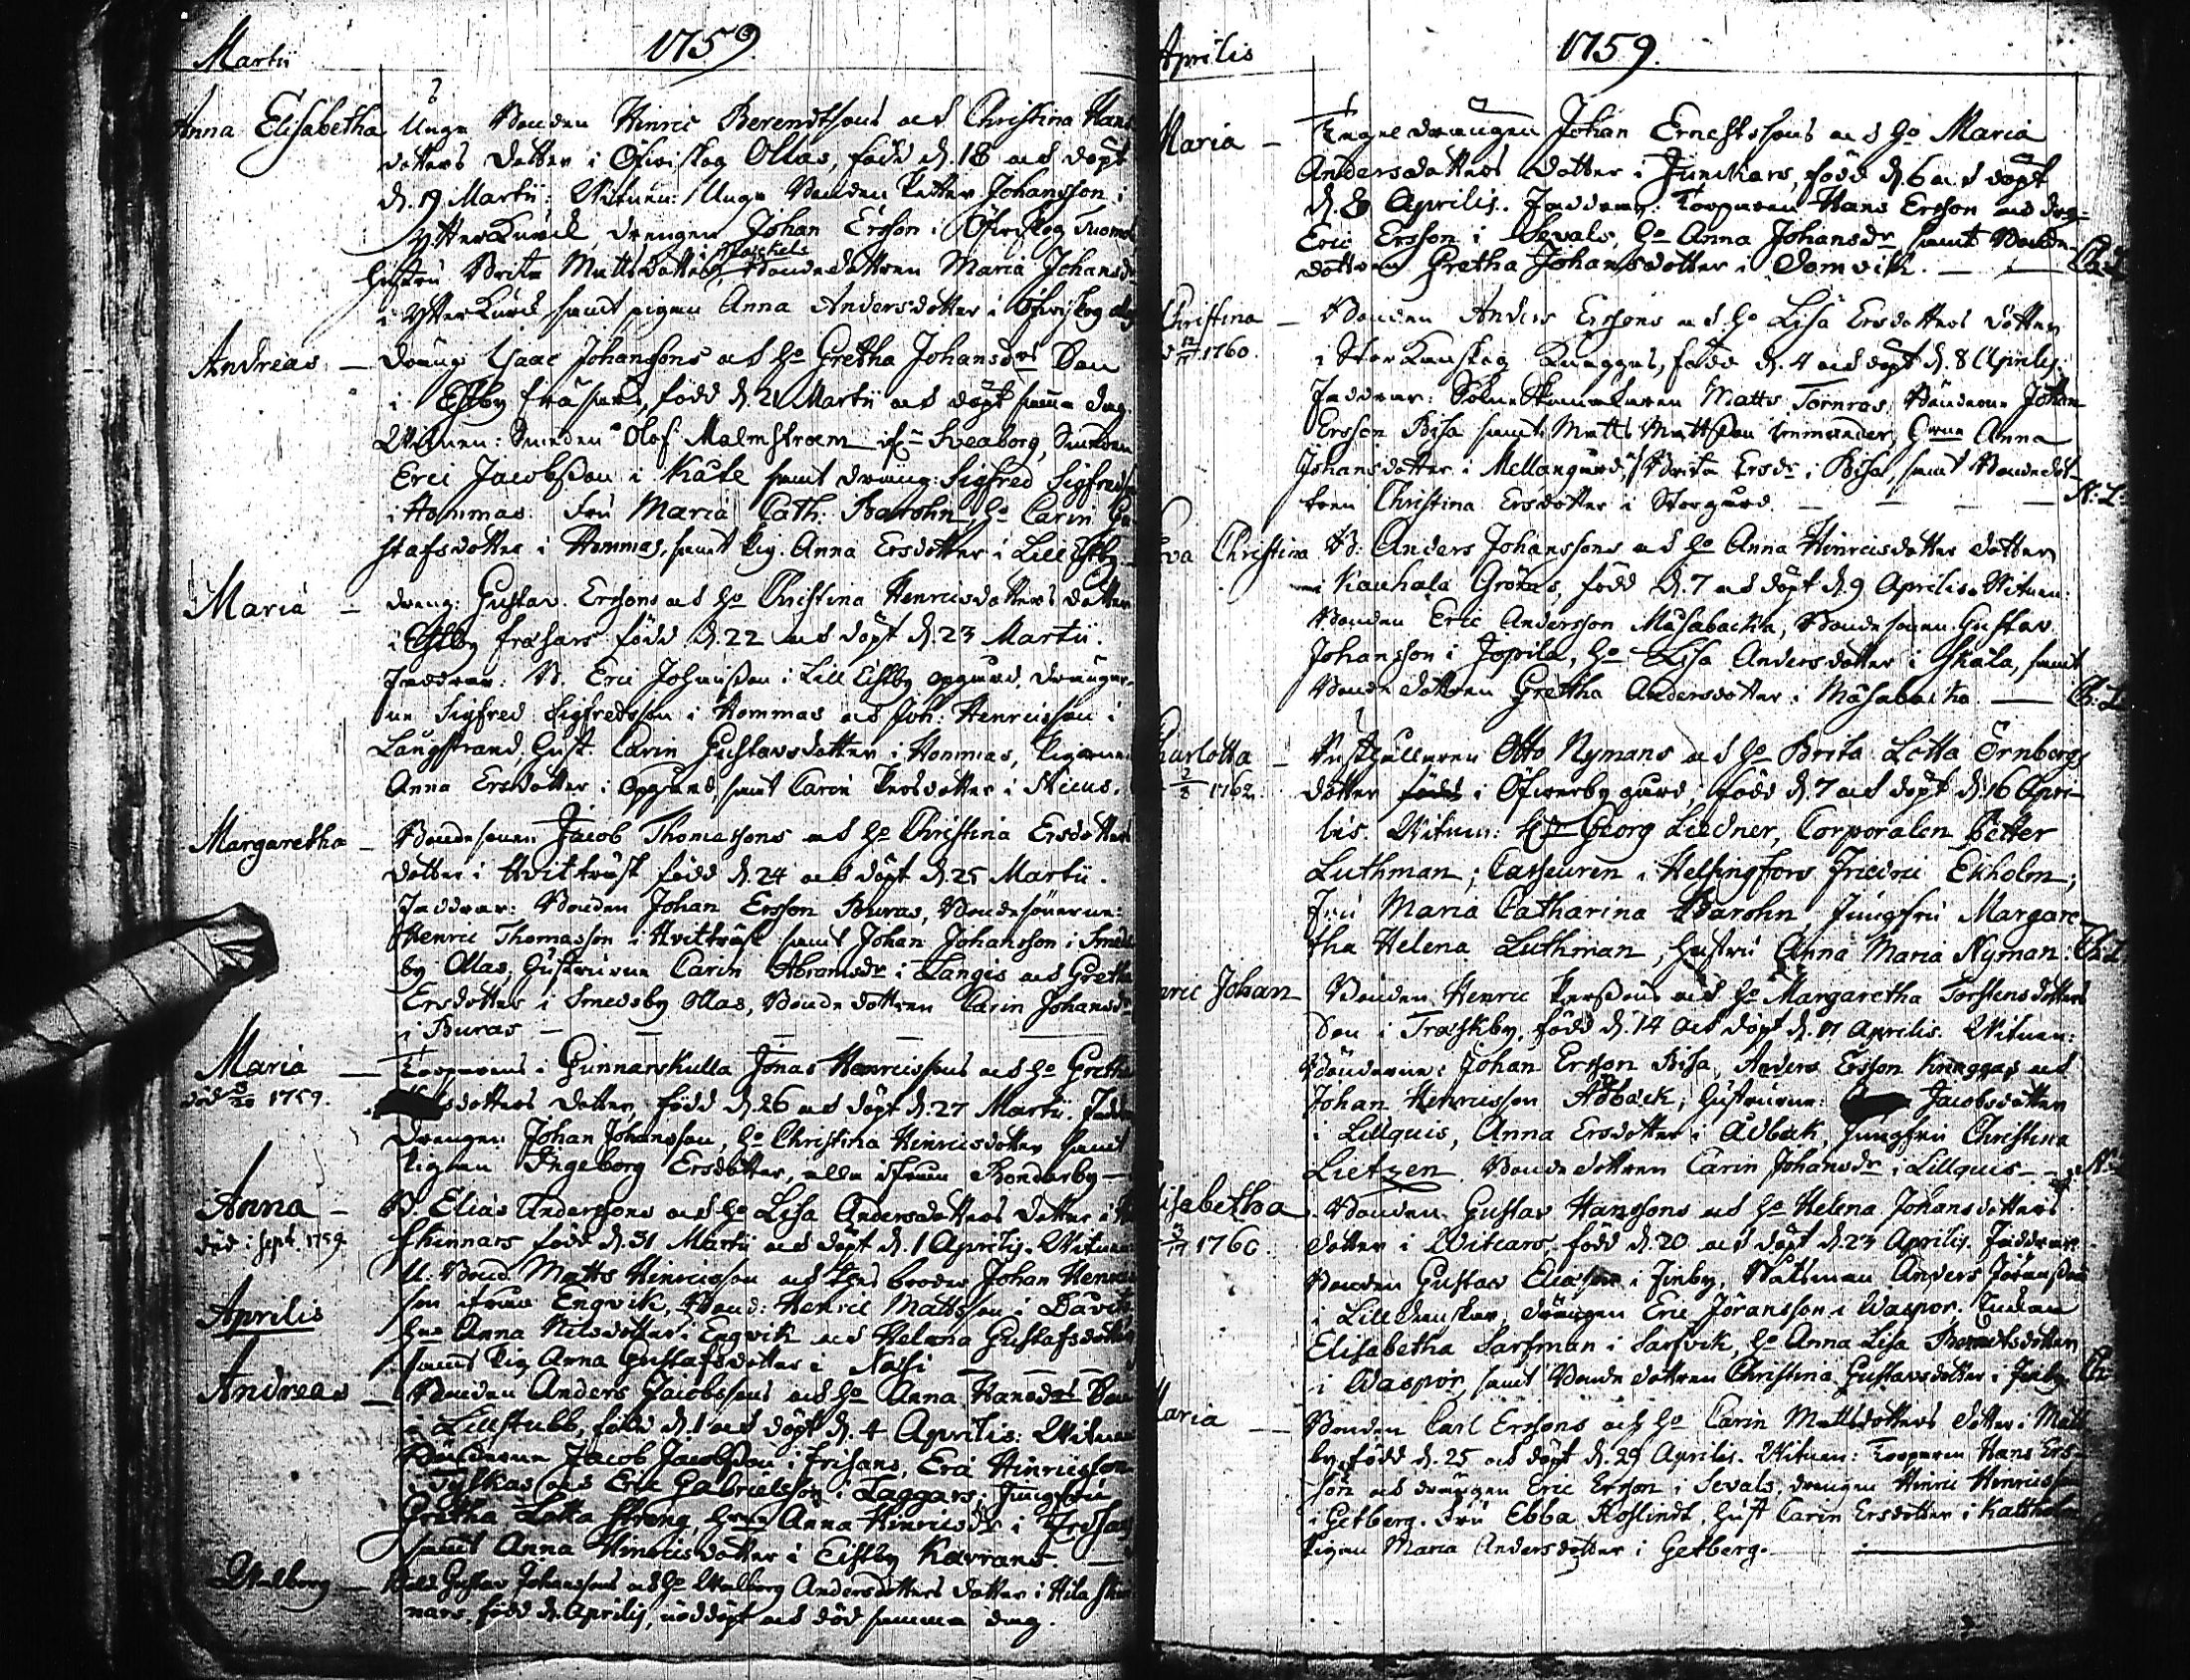 Martii 1759.
Anna Elisabetha Unge Bonden Hinric Berendtsons och Christina Hans
dotters dotter i Öfwerskog Ollas, född d. 18 och döpt
d. 19 Martii: Witnen: Unge Bonden Petter Johansson i
Ytter Kurck, drengen Johan Ersson i Öfwerskog Tuomas
Hustru Brita Mattsdotter i Markels, Bondedottren Maria Johansdr
i Ytter Kurck samt pigan Anna Andersdotter i Öfwerskog
Andreas — Dräng Isaac Johanssons och ho Gretha Johansdrs Son
i Estby Fräsars, född d. 21 Martii och döpt samma dag.
Witnen: Smeden Olof Malmstroem ifrn Sveaborg, Smeden
Eric Jacobsson i Kåte samt dräng: Sigfred Sigfreds
i Hommas. Fru Maria Cath. Barohn, ho Carin Gu
stafsdotter i Hommas, samt Pig. Anna Ersdotter i Lill Estby
Maria — dreng: Gustav Erssons och ho Christina Henricsdotters dotter
i Estby Fræsars född d. 22 och döpt d. 23 Martii.
Faddrar: B. Eric Johansson i Lill Estby opgård, Drengar
ne Sigfred Sigfredsson i Hommas och Joh: Henricsson i
Långstrand, Hust. Carin Gustavsdotter i Hommas, Pigorne
Anna Ersdotter i Opgård, samt Carin Persdotter i
Margaretha — Bondesonen Jacob Thomassons och ho Christina Ersdotters
dotter i Hvitträsk född d. 24 och döpt d. 25 Martii.
Faddrar: Bonden Johan Ersson Buras, Bondesönerne:
Henric Thomasson i Hvitträsk samt Johan Johansson i Smeds
by Ollas; Hustrurne Carin Abramsdr i Langis och Gretha
Ersdotter i Smedsby Ollas, Bonde dottren Carin Johansdr
i Buras —
Maria — Torparens i Gunnarskulla Jonas Henricssons och ho Gretha
död 1759. dotters dotter, född d. 26 och döpt d. 27 Martii. Faddr
Drengen Johan Johansson, ho Christina Hinricsdotter samt
Pigan Ingeborg Ersdotter, alla ifrån Sonderby —
Anna — B. Elias Anderssons och ho Lisa Andersdotters dotter i
död i Sept. 1759. Skinnars född d. 31 Martii och döpt d. 1 Aprilis. Witnen
U. Bond. Matts Hinricsson och thes broder Johan Henric
son ifrån Engvik, Bond: Henric Mattsson i Davits
Aprilis
Hus Anna Nilsdotter i Engvik och Helena Gustafsdotter
samt Pig Anna Gustafsdotter i Nassi
Andreas — Bonden Anders Jacobssons och ho Anna Hansdrs Son
i Lillstubb, född d. 1 och döpt d. 4 Aprilis: Witnen
Bönderne Jacob Jacobsson i Frisans, Eric Hinricsson
i Tylkas och Eric Gabrielsson i Taggars; Jungfru
Gretha Lotta Streng, Anna Hinricsdr i Fridsans
samt Anna Hinricsdotter i Eistby Kavrans —
Walborg — Gustav Johanssons och ho Walborg Andersdotters dotter i Hila Skin
nars, född d. Aprilis, nöddöpt och död samma dag.
Aprilis 1759.
Maria — drengen Johan Ernestssons och ho Maria
Andersdotters dotter i Junckars, född d. 6 och döpt
d. 8 Aprilis. Faddrar: Torparen Hans Ersson och dreng
Eric Ersson i Sevals, ho Anna Johansdr samt Bonde
dottren Gretha Johansdotter i Domvik. —
Christina — Bonden Anders Erssons och ho Lisa Ersdotters dotter
1760. i Stor Kanskog Knaggas, född d. 4 och döpt d. 8 Aprilis.
Faddrar: Matts Törnros, Bönderne Johan
Ersson Bisa samt Matts Mattsson, Anna
Johansdotter i Mellangård, Brita Ersdr i Bisa, samt Bondedot
tren Christina Ersdotter i Storgård — N: L:
Eva Christina B: Anders Johanssons och ho Anna Hinricsdotter dotter
i Kauhala Grötas, född d. 7 och döpt d. 9 Aprilis. Witnen:
Bonden Eric Andersson Måsabacka, Bondesonen Gustav
Johansson i Jopila, ho Lisa Andersdotter i Skåla, samt
Bonde dottren Gretha Andersdotter i Måsabacka —
Charlotta — Otto Nymans och ho Brita Lotta Örnbergs
1762. dotter i Öfwerby gård, född d. 7 och döpt d. 16 Apri-
lis. Witnen: Georg Liedner, Corporalen Petter
Luthman; Casseuren i Helsingfors Fredric Ekholm;
Fru Maria Catharina Barohn Jungfru Margare
tha Helena Luthman, Hustru Anna Maria Nyman:
Henric Johan — Bonden Henric Perssons och ho Margaretha Torstensdotters
Son i Træskby, född d. 14 och döpt d. 17 Aprilis. Witnen:
Bönderne: Johan Ersson Bisa, Anders Ersson Knaggas och
Johan Henricsson Ådback; Hustrurne: Jacobsdotter
i Lillquis, Anna Ersdotter i Ådbak, Jungfru Christina
Lietzen Bondedottren Carin Johansdr i Lillquis —
Elisabetha Bonden Gustav Hanssons och ho Helena Johansdotters
1760. dotter i Witcars, född d. 20 och döpt d. 23 Aprilis. Faddrar
Bonden Gustav Eliasson i Finby, Båtsman Anders Jöransson
i Lill Cranskar, Drängen Eric Jöransson i Waspor. Enkan
Elisabetha Sarfman i Sarfvik, ho Anna Lisa Berndtsdotter
i Waspor, samt Bonde dottren Christina Gustavsdotter i Finby
Maria — Bonden Carl Erssons och ho Carin Mattsdotters dotter i Matt
by, född d. 25 och döpt d. 29 Aprilis. Witnen: Torparen Hans Ers
son och drängen Eric Ersson i Sevals, drengen Hinric Henricsson
i Getberg. Fru Ebba Hoslindt, Hust Carin Ersdotter i Kattholm
Pigan Maria Andersdotter i Getberg. —